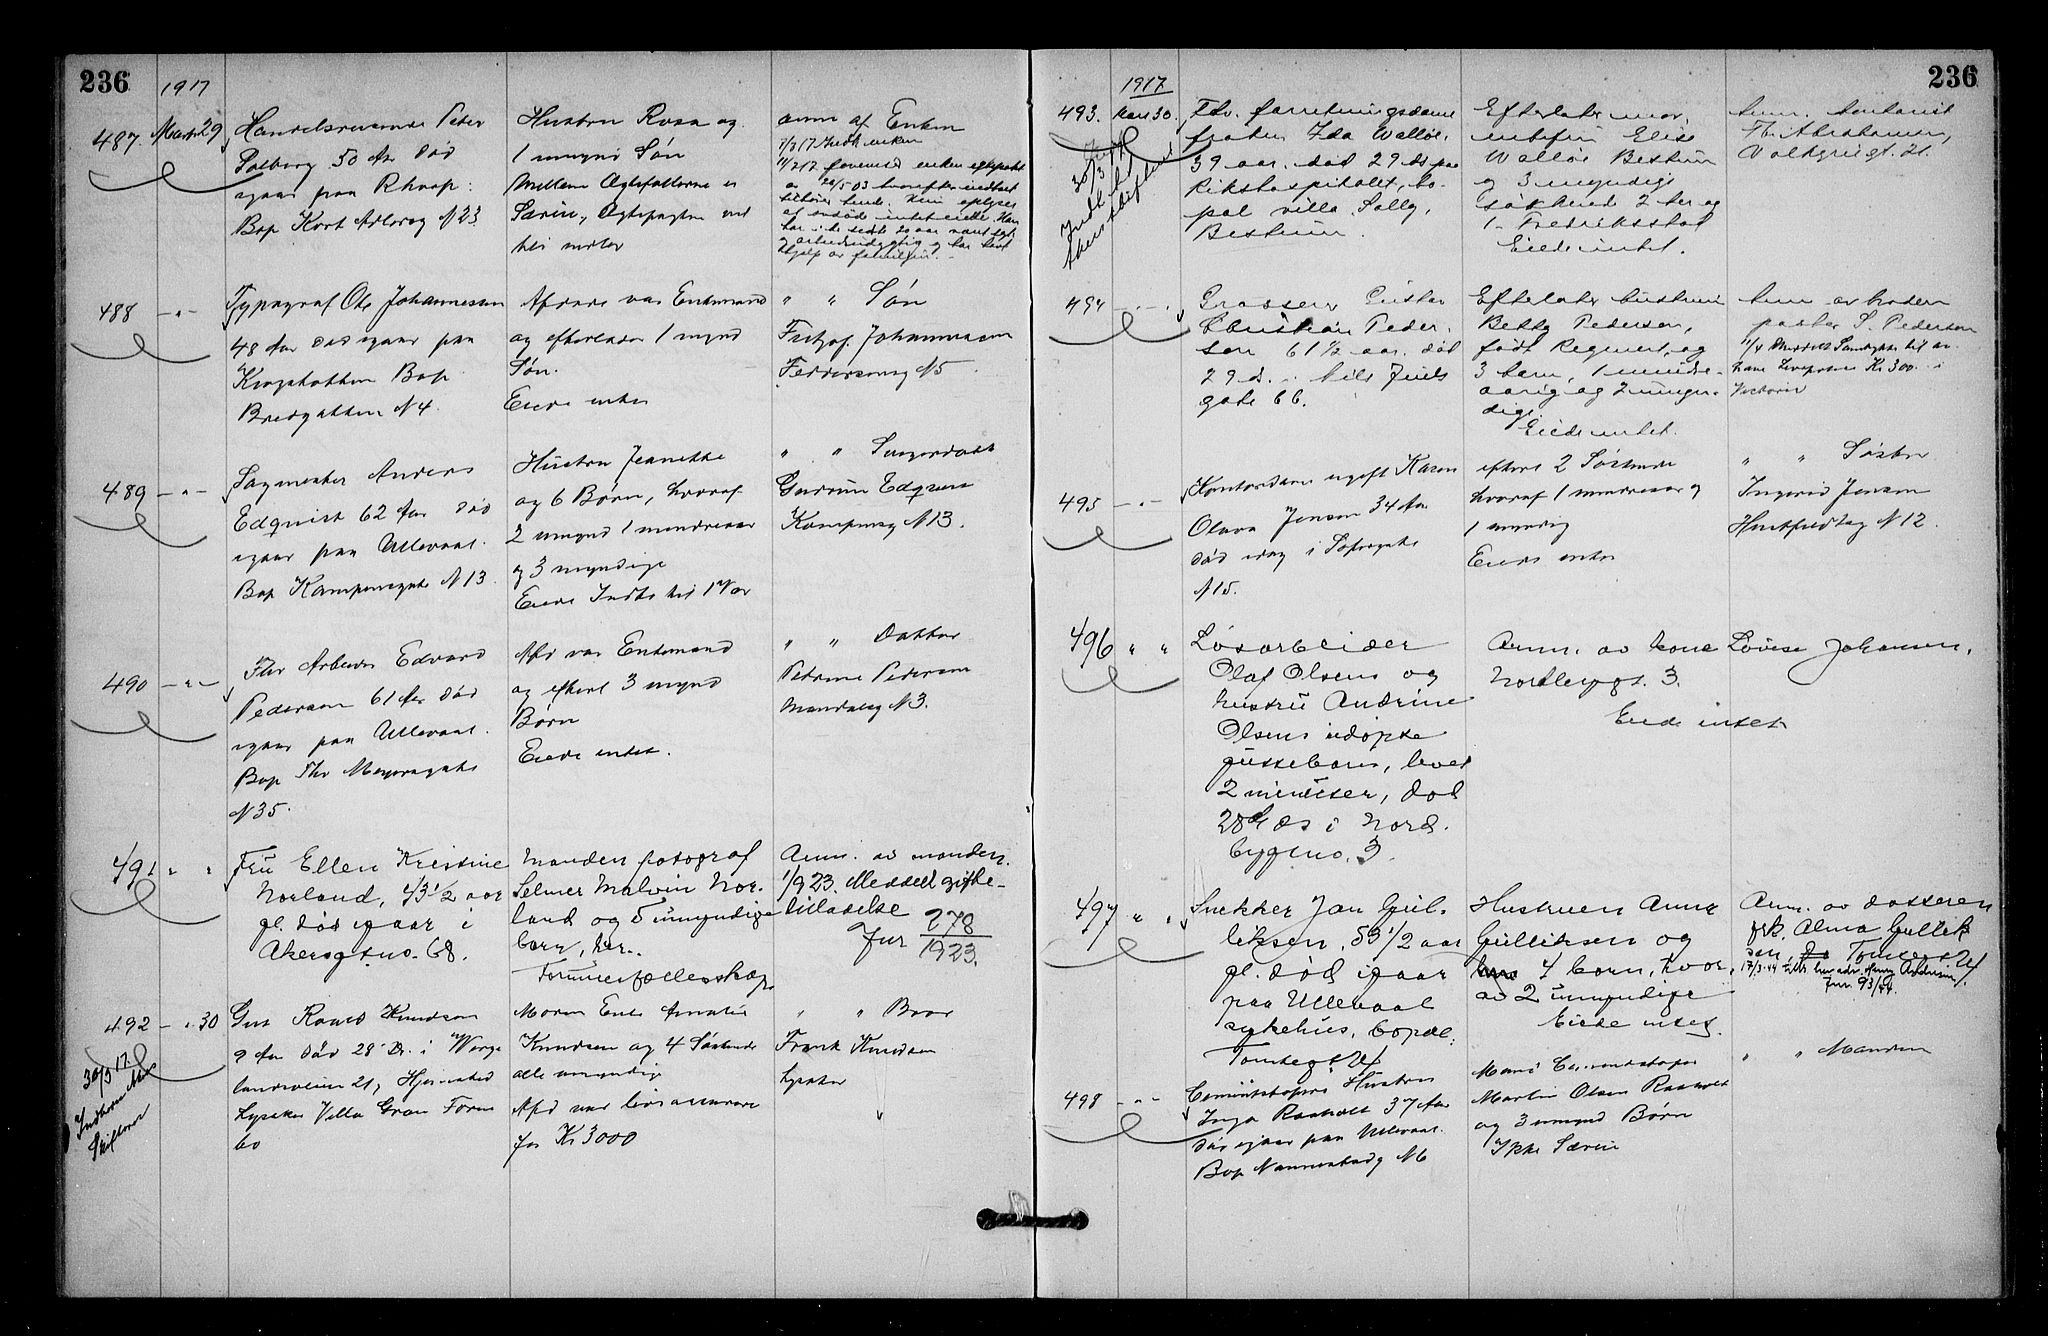 236
1917
487. Marts 29
Handelsreisende Peter
Solberg 50 Aar død
igaar paa Rhosp:
Bop Kort Adlersg N 23
Hustru Rosa og
1 umynd Søn
Mellem Ægtefællerne er
Særeie, Ægtepagten ved
anm af Enken
488
Typograf Ole Johannessen
48 Aar død igaar paa
Krogstøtten Bop
Bredgatten N 4.
Afdøde var Enkemand
og efterlader 1 mynd
Søn.
Eiede intet
" " Søn
Fritjof Johannessen
Feddersensg N 5
489
Sagmester Anders
Edquist 62 Aar død
igaar paa Ullevaal.
Bop Kampensgate N 13
Hustru Jeanette
og 6 Børn, hvoraf
2 umynd 1 mindreaar
og 3 myndige
Eiede Indbo
" " Svigerdatt
Gudrun Edquist
Kampensg N 13.
490
Fhv Arbeider Edvard
Pedersen 61 Aar død
igaar paa Ullevaal.
Bop Thv Meyersgate
N 35.
Afd var Enkemand
og efterl 3 mynd
Børn
Eiede intet.
" " Datter
Petrine Pedersen
Mandalsg N 3.
491 " "
Fru Ellen Kristine
Norland, 43 1/2 aar
gl. død igaar i
Akersgt no. 68.
Manden fotograf
Selmer Malvin Nor-
land og 5 umyndige
barn, her.
Formuesfællesskap.
Anm. av manden.
1/9 23. Meddelt gifte-
tilladelse
Jnr 278
1923.
492 - " 30
Gut Roald Knudsen
9 Aar død 28 Ds. i Werge
landsveien 21, Hjemsted
Lysaker Villa Gran
bo
Moren Enke Amalie
Knudsen og 4 Søskende
alle umyndige
Afd var livsassurert
for Kr 3000
" " Bror
Frank Knudsen
Lysaker
30/3 17.
Skifteret
236
1917
493. Mars 30.
Fhv. forretningsdame
frøken Ida Walløe,
39 aar. død 29 ds paa
Rikshospitalet, bo-
pæl villa Solly,
Bestum.
Efterlater mor,
enkefru Elise
Walløe Bestum
og 3 myndige
søskend 2 her og
1 - Fredriksstad
Eiede intet.
30/3 17
Indb. til
Aker skifteret
494
Grosserer Peter
Christian Peder-
sen 61 1/2 aar. død
29 ds. Niels Juels
gate 66.
Efterlater hustru
Betty Pedersen,
født Regnert, og
3 barn, 1 mindre-
aarig og 2 myn-
dige
Eiede intet.
Anm av broder
pastor S. Pedersen
495
Kontordame ugift Karen
Olava Jensen 34 Aar
død idag i Sofiesgate
N 15.
efterl 2 Søskende
hvoraf 1 mindreaar og
1 myndig
Eiede intet
" " Søster
Ingerid Jensen
Huitfeldtsg N 12.
496 " "
Løsarbeider
Olaf Olsens og
hustru Andrine
Olsens udøpte
guttebarn, levet
2 minutter, død
28de ds i Nord-
bygt no. 3.
Anm. av kone Lovise Johansen,
Nordbygt. 3.
Eiede intet
497 " "
Snekker Jan Gul-
liksen, 53 1/2 aar
gl. død igaar
paa Ullevaal
sykehus, bopæl:
Tomtegt 24
Hustruen Anna
Gulliksen og
4 barn, hvor-
av 2 umyndige
Eiede intet.
Anm. av datteren
frk. Alma Gullik
sen, Tomtegt 24
Jnr. 93/44.
498
Inga Raaholt 37 Aar
død igaar paa Ullevaal.
Bop Nannestadg N 6
Martin Olsen Raaholt
og 3 umynd Børn
Ikke Særeie
" " Manden